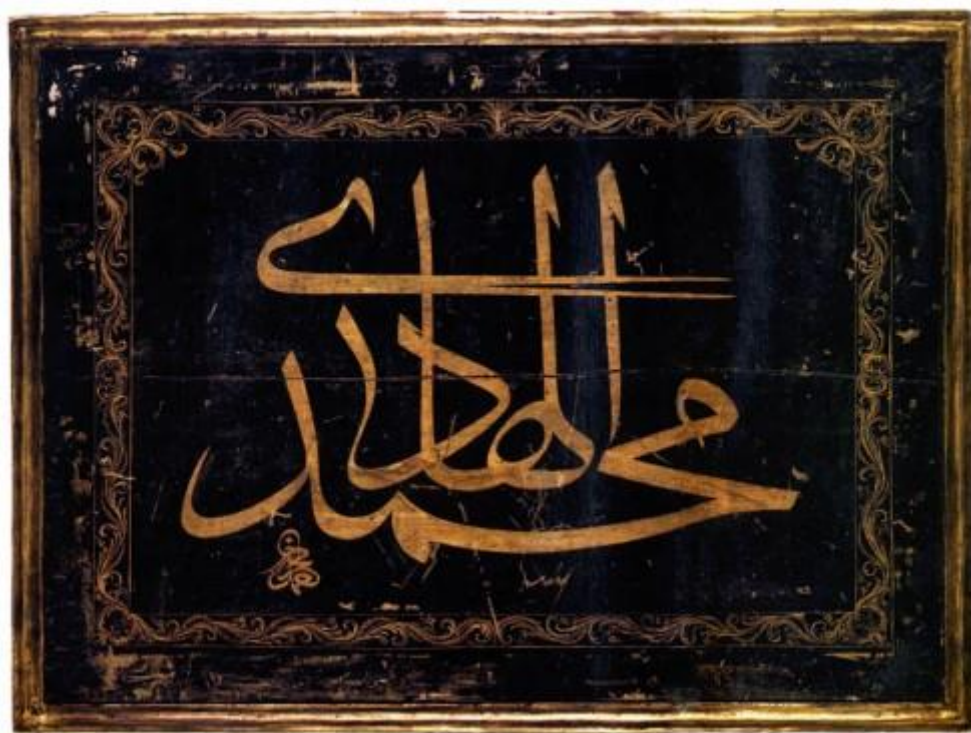 محمد
الهادى